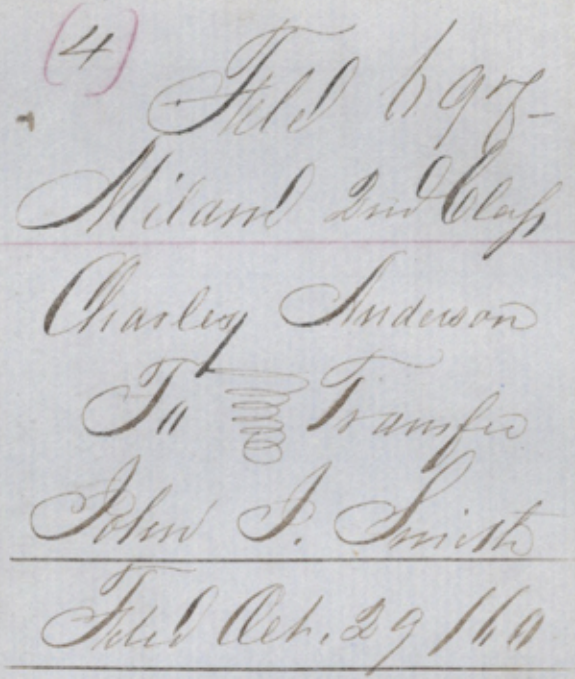 (4)
File 697-
Milam 2nd Class
Charley Anderson
To Transfer
John J. Smith
Filed Oct. 29 /60